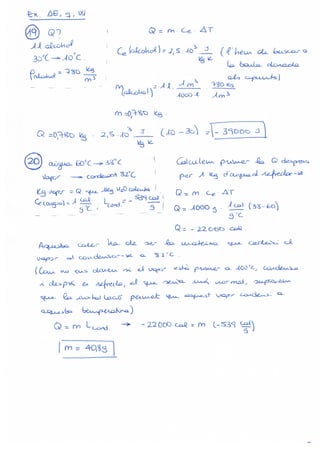 Ex. ΔE, q, W
19 Q?
Q = m · Ce · ΔT
1 l alcohol
30°C → 10°C
Ce (alcohol) = 2,5·10³ J/kg K (l'hem de buscar a la taula donada als apunts)
ρ alcohol = 780 kg/m³
m (alcohol) = 1 l · 1 m³/1000 l · 780 kg/1 m³
m = 0,780 kg
Q = 0,780 kg · 2,5·10³ J/kg K (10 - 30) = - 39000 J
20 aigua 60°C → 38°C
vapor → condensat 82°C
Kg vapor = Q que 1 kg H₂O calenta
Ce (aigua) = 1 cal/g°C Lcond = - 539 cal/g
Calculem primer la Q després
per 1 kg d'aigua al refredar-se
Q = m Ce ΔT
Q = 1000 g · 1 cal/g°C (38-60)
Q = - 22000 cal
Aquesta calor ha de ser la mateixa que cedeixi el
vapor al condensar-se a 82°C.
(Com no ens diuen si el vapor està primer a 100°C, condensa
i després es refreda, el que seria més normal, suposarem
que la instal·lació permet que aquest vapor condensi a
aquesta temperatura)
Q = m Lcond. → - 22000 cal = m (-539 cal/g)
m = 40,8 g